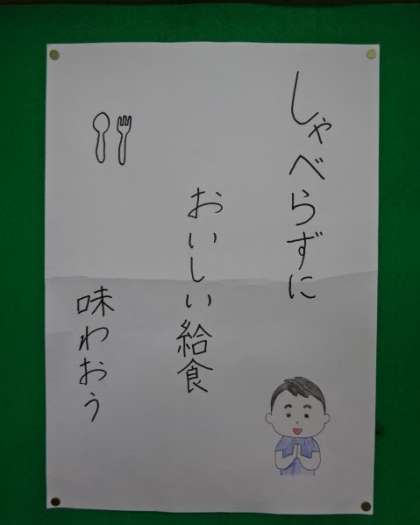 しゃべらずに
おいしい給食
味わおう